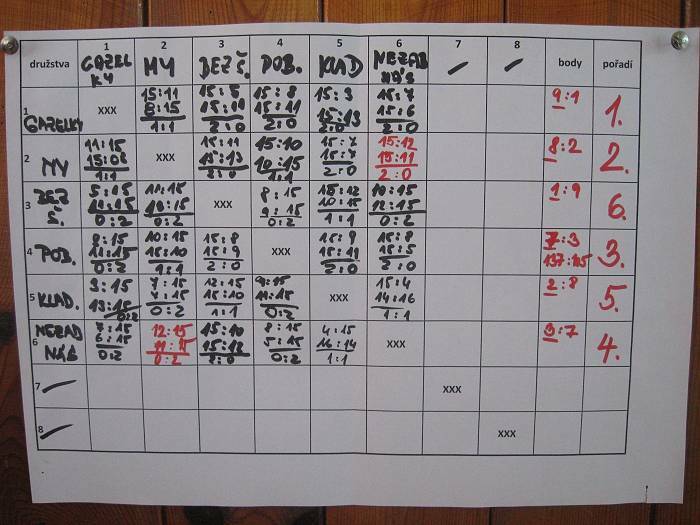 družstva 1 GAZEL KY 2 MY 3 BEZ Š. 4 POB. 5 KLAD 6 NEZAB NÁŠ 7 8 body pořadí
1 GAZELKY XXX 15:11 8:15 1:1 15:5 15:11 2:0 15:8 15:11 2:0 15:3 15:13 2:0 15:7 15:6 2:0 9:1 1.
2 MY 11:15 15:08 1:1 XXX 15:11 15:13 2:0 15:10 10:15 1:1 15:7 15:7 2:0 15:12 15:11 2:0 8:2 2.
3 BEZ Š. 5:15 11:15 0:2 11:15 13:15 0:2 XXX 8:15 9:15 0:2 15:12 10:15 1:1 10:15 12:15 0:2 1:9 6.
4 POB. 8:15 11:15 0:2 10:15 15:10 1:1 15:8 15:9 2:0 XXX 15:9 15:11 2:0 15:8 15:5 2:0 7:3 3.
5 KLAD. 3:15 13:15 0:2 7:15 7:15 0:2 12:15 15:10 1:1 9:15 11:15 0:2 XXX 15:4 14:16 1:1 2:8 5.
6 NEZAB NÁŠ 7:15 6:15 0:2 12:15 11:15 0:2 15:10 15:12 2:0 8:15 5:15 0:2 4:15 16:14 1:1 XXX 3:7 4.
7 XXX
8 XXX